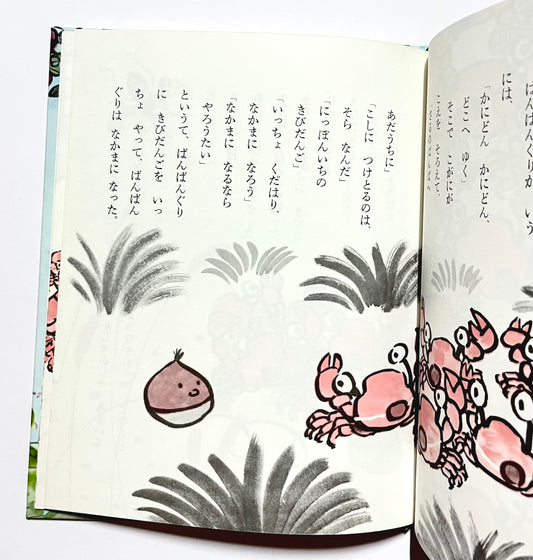 ぱんぱんぐりが いう
には、
「かにどん かにどん、
どこへ ゆく」
そこで こがにが
こえを そろえて、
さるのばんばへ
あだうちに」
「こしに つけとるのは、
そら なんだ」
「にっぽんいちの
きびだんご」
「いっちょ くだはり、
なかまに なろう」
「なかまに なるなら
やろうたい」
というて、ぱんぱんぐり
に きびだんごを いっ
ちょ やって、ぱんぱん
ぐりは なかまに なった。